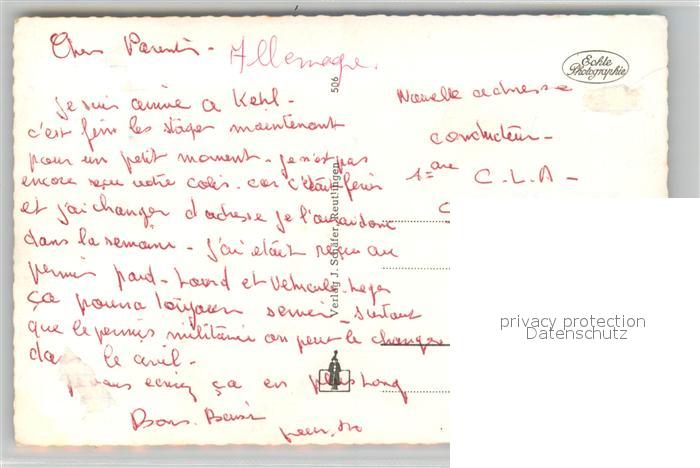 Chers Parents - Allemagne.
Echte Photographie
506
Nouvelle adresse
conducteur -
C. L. A -
je suis arrivé a Kehl -
c'est fini les stages maintenant
pour un petit moment - je n'ai pas
encore reçu votre colis. car c'était férié
et j'ai changer d'adresse je l'aurai donc
dans la semaine - j'ai était reçu au
permis poid - Lourd et Vehicule Leger
ça pourra toujours servir - surtout
que le permis militaire on peut le changer
le civil -
vous ecrirez ça en plus long
Bons. Baisir
Verlag J. Schäfer, Reutlingen
privacy protection
Datenschutz